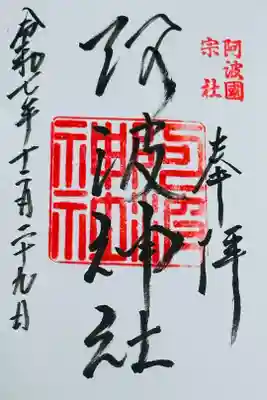 阿波國
宗社
奉拝
阿波神社
令和七年十二月二十九日